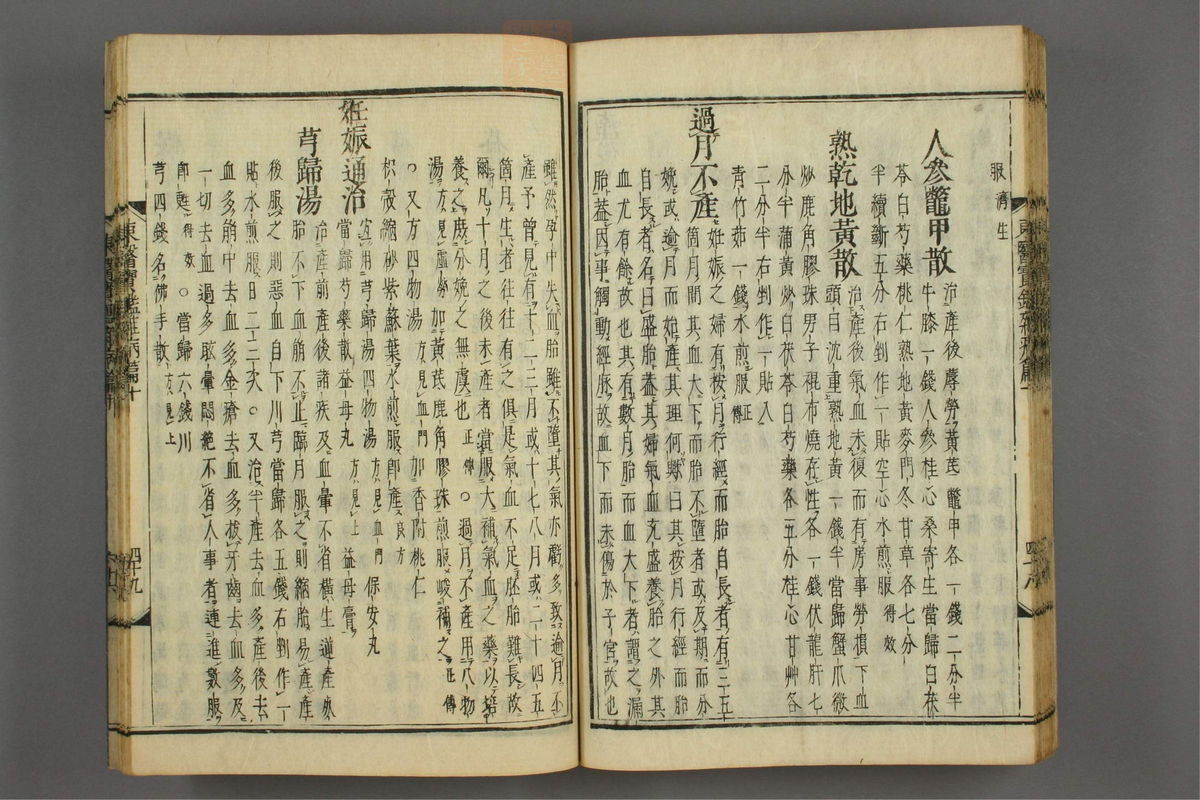 服 濟生
人參鼈甲散 治產後蓐勞黃芪鼈甲各一錢二分半
牛膝一錢人參桂心桑寄生當歸白茯
苓白芍藥桃仁熟地黃麥門冬甘草各七分
半續斷五分右剉作一貼空心水煎服 得效
熟乾地黃散 治產後氣血未復而有房事勞損下血
頭目沈重熟地黃一錢半當歸蟹爪微
炒鹿角膠珠男子裩布燒存性各一錢伏龍肝七
分半蒲黃炒白茯苓白芍藥各五分桂心甘艸各
二分半右剉作一貼入
靑竹茹一錢水煎服 正傳
過月不產 妊娠之婦有按月行經而胎自長者有三五
箇月間其血大下而胎不墮者或及期而分
娩或逾月而始產其理何歟曰其按月行經而胎
自長者名曰盛胎盖其婦氣血充盛養胎之外其
血尤有餘故也其有數月胎而血大下者謂之漏
胎盖因事觸動經脉故血下而未傷於子宮故也
雖然孕中失血胎雖不墮其氣亦虧多致逾月不
產予曾見有十二三月或十七八月或二十四五
箇月生者往往有之俱是氣血不足胚胎難長故
爾凡十月之後未產者當服大補氣血之藥以培
養之庶分娩之無虞也 正傳 ○過月不產用八物
湯 方見虛勞 加黃芪鹿角膠珠煎服峻補之 正傳
○又方四物湯 方見血門 加香附桃仁
枳殼縮砂紫蘇葉水煎服卽產 良方
妊娠通治 宜用芎歸湯四物湯 方見血門 保安丸
當歸芍藥散益母丸 方見上 益母膏
芎歸湯 治產前產後諸疾及血暈不省橫生逆產死
胎不下血崩不止臨月服之則縮胎易產產
後服之則惡血自下川芎當歸各五錢右剉作一
貼水煎服日二三次○又治半產去血多產後去
血多崩中去血多金瘡去血多拔牙齒去血多及
一切去血過多眩暈悶絶不省人事者連進數服
卽甦 得效 ○當歸六錢川
芎四錢名佛手散 方見上
東醫寶鑑雜病篇十
四十九